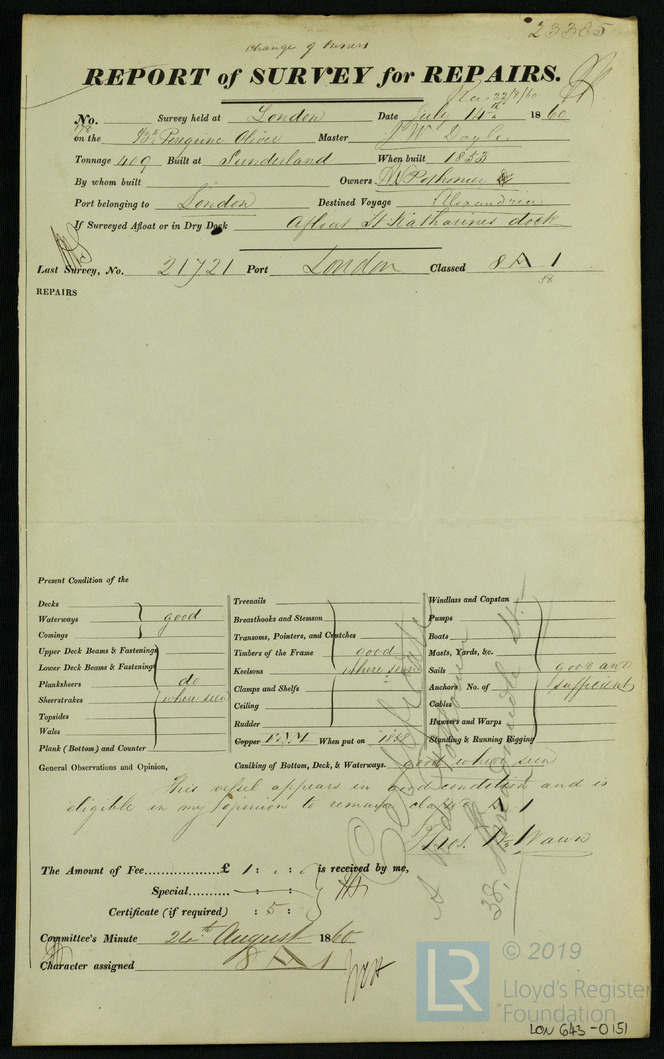 23385
Change of Owners
REPORT of SURVEY for REPAIRS.
Rec 22/8/60
No. Survey held at London Date July 14th 1860
178
on the Bk Peregrine Oliver Master J W Doyle
Tonnage 409 Built at Sunderland When built 1853
By whom built Owners W Pothonier &
Port belonging to London Destined Voyage Alexandria
If Surveyed Afloat or in Dry Dock Afloat St Katharines dock
Last Survey, No. 21721 Port London Classed 8 A 1
58
REPAIRS
Present Condition of the
Decks
Waterways good
Comings
Upper Deck Beams & Fastenings
Lower Deck Beams & Fastenings
Planksheers do
Sheerstrakes when seen
Topsides
Wales
Plank (Bottom) and Counter
Treenails
Breasthooks and Stemson
Transoms, Pointers, and Crutches
Timbers of the Frame good
Keelsons where seen
Clamps and Shelfs
Ceiling
Rudder
Copper Y.M When put on 1858
Caulking of Bottom, Deck, & Waterways. good where seen
Windlass and Capstan
Pumps
Boats
Masts, Yards, &c.
Sails good and
Anchors No. of sufficient
Cables
Hawsers and Warps
Standing & Running Rigging
General Observations and Opinion,
This vessel appears in good condition and is
eligible in my opinion to remain classed A 1
Thos. Wawn
Certificate
The Amount of Fee £ 1 : : is received by me,
Special : :
Certificate (if required) : 5 :
Committee's Minute 24th August 1860
Character assigned 8 A 1
© 2019
LR Lloyd's Register
Foundation
LON 643-0151